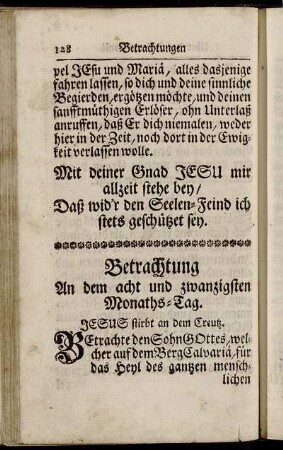 128 Betrachtungen
pel JEsu und Mariä, alles dasjenige
fahren lassen, so dich und deine sinnliche
Begierden, ergötzen möchte, und deinen
sanfftmüthigen Erlöser, ohn Unterlaß
anruffen, daß Er dich niemalen, weder
hier in der Zeit, noch dort in der Ewig-
keit verlassen wolle.
Mit deiner Gnad JESU mir
allzeit stehe bey/
Daß wid'r den Seelen-Feind ich
stets geschützet sey.
Betrachtung
An dem acht und zwanzigsten
Monaths-Tag.
JESUS stirbt an dem Creutz.
BEtrachte den Sohn GOttes, wel-
cher auf dem Berg Calvariä, für
das Heyl des gantzen mensch-
lichen